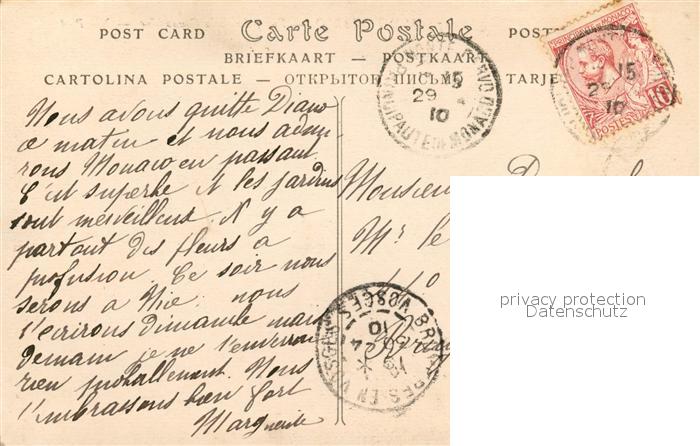 POST CARD Carte Postale POST
BRIEFKAART — POSTKAART
CARTOLINA POSTALE — ОТКРЫТОЕ ПИСЬМО — TARJE
PRINCIPAUTÉ DE MONACO
POSTES
15
29
10
PRINCIPAUTÉ DE MONACO
15
29
10
Nous avons quitté Diano
ce matin et nous admi-
rons Monaco en passant
C'est superbe et les jardins
sont merveilleux. Il y a
partout des fleurs à
profusion. Ce soir nous
serons à Nice. nous
t'écrirons dimanche mais
demain je ne t'enverrai
rien probablement. Nous
t'embrassons bien fort
Marguerite
Monsieur
Mr le
110
VOSGES
privacy protection
Datenschutz